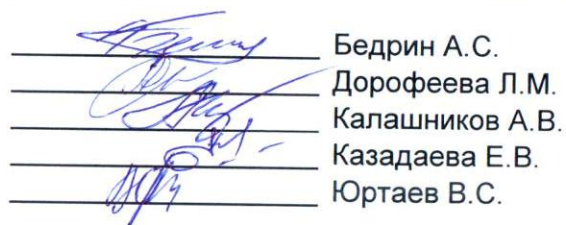 Бедрин А.С.
Дорофеева Л.М.
Калашников А.В.
Казадаева Е.В.
Юртаев В.С.